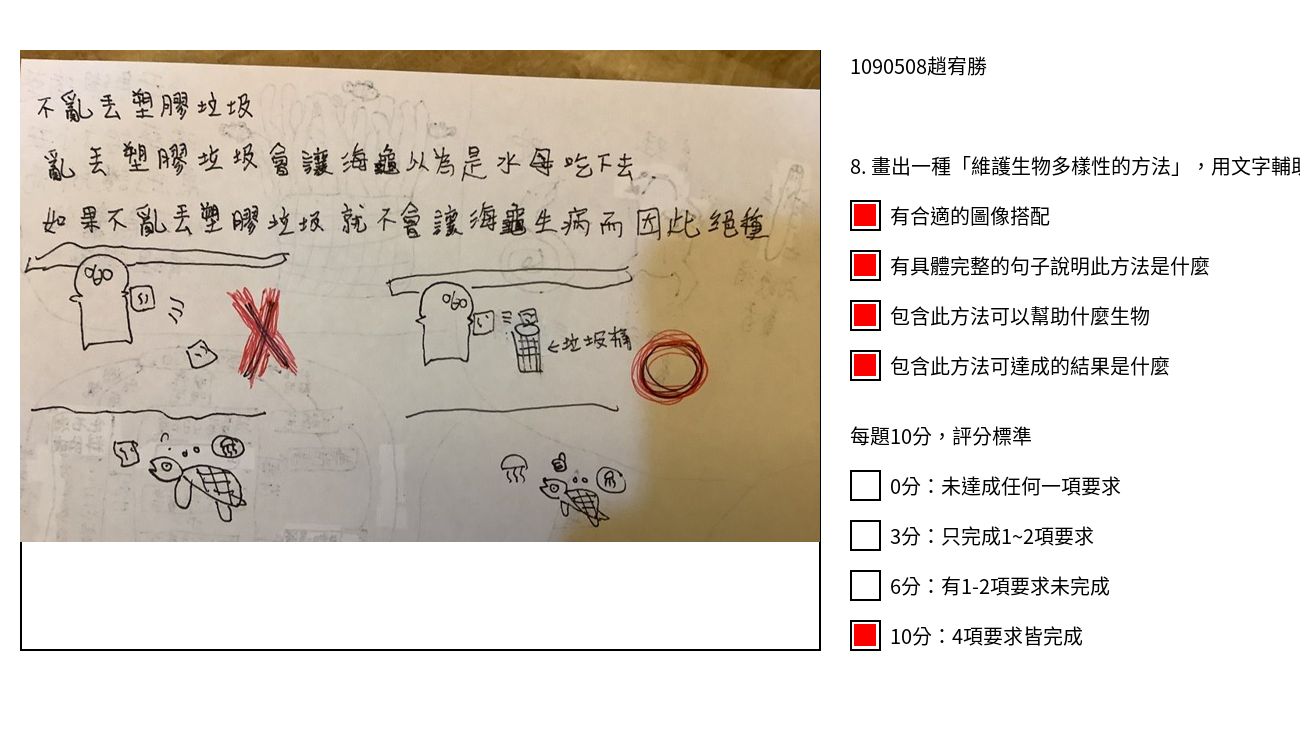 不亂丟塑膠垃圾
亂丟塑膠垃圾會讓海龜以為是水母吃下去
如果不亂丟塑膠垃圾就不會讓海龜生病而因此絕種
←垃圾桶
1090508趙宥勝
8. 畫出一種「維護生物多樣性的方法」，用文字輔助
有合適的圖像搭配
有具體完整的句子說明此方法是什麼
包含此方法可以幫助什麼生物
包含此方法可達成的結果是什麼
每題10分，評分標準
0分：未達成任何一項要求
3分：只完成1~2項要求
6分：有1-2項要求未完成
10分：4項要求皆完成